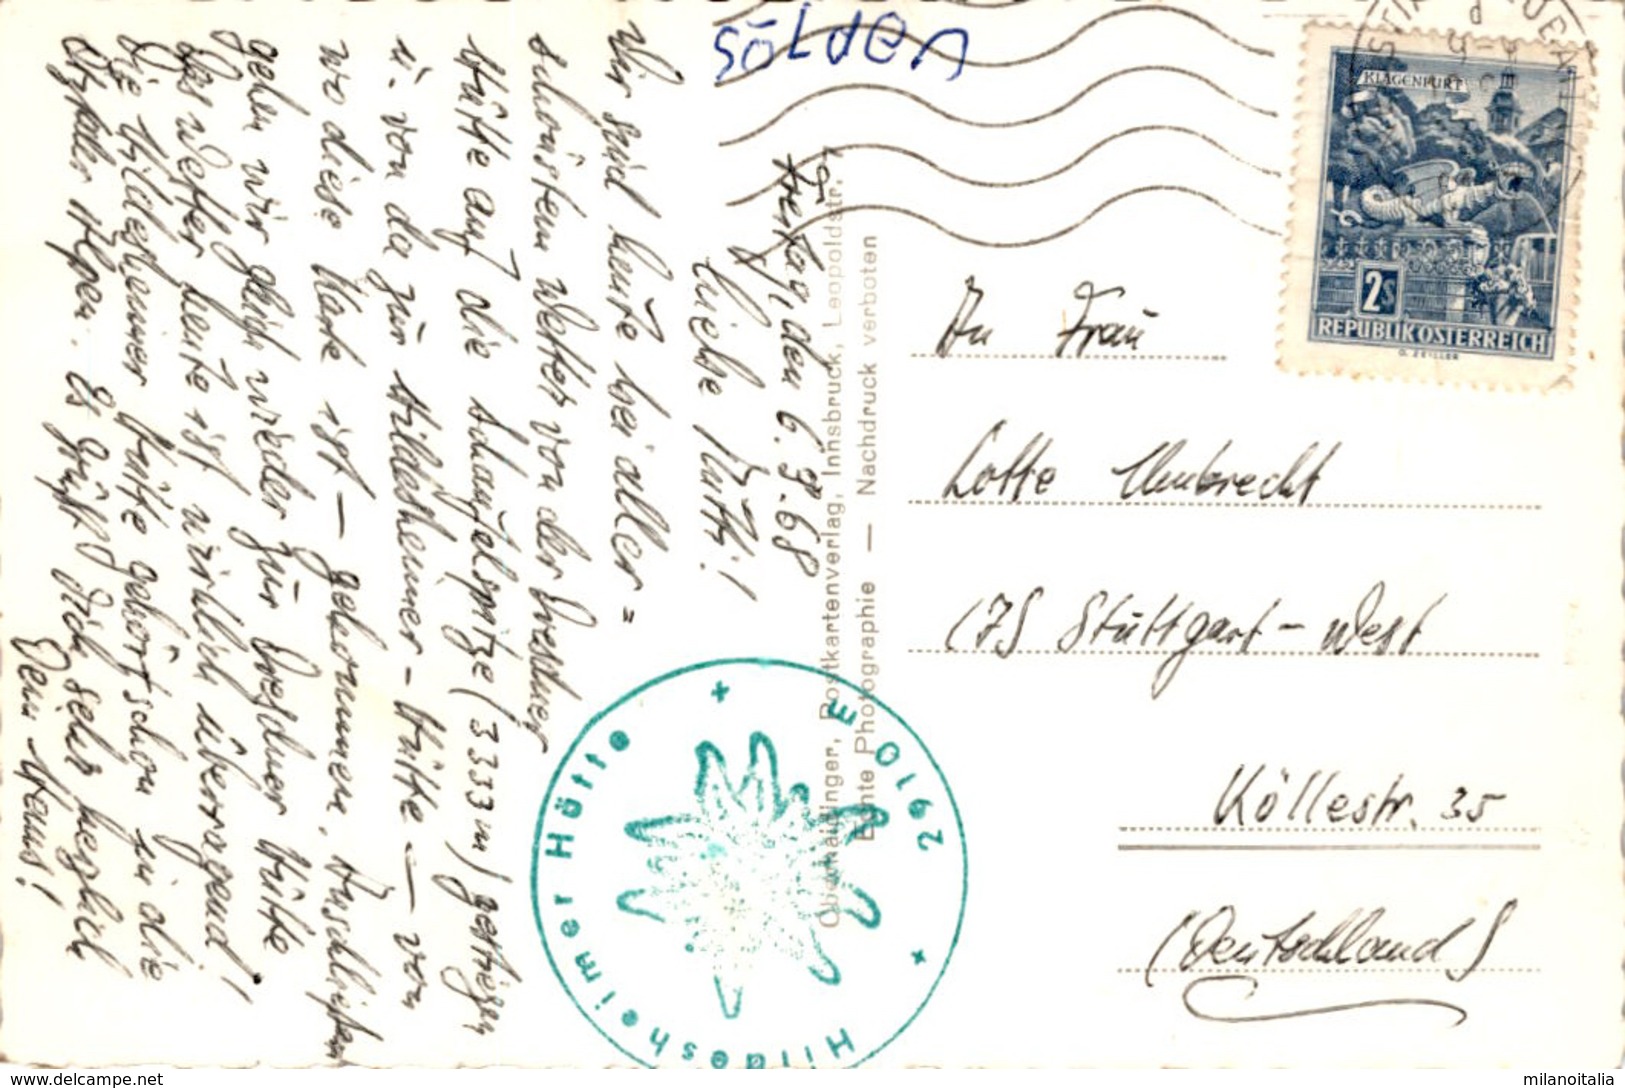 Sölden
Freitag, den 6.9.68
Liebe Mutti!
Wir sind heute bei aller=
schönstem Wetter von der Dresdner
Hütte auf die Schaufelspitze (3333m) gestiegen
u. von da zur Hildesheimer-Hütte — von
wo diese Karte ist — gekommen. Anschließend
gehen wir gleich wieder zur Dresdner Hütte
Das Wetter heute ist wirklich überragend!
Die Hildesheimer Hütte gehört schon in die
Ötztaler Alpen. Es grüßt Dich sehr herzlich
Dein Hans!
Hildesheimer Hütte + E 0162 +
Obermaidlinger, Postkartenverlag, Innsbruck, Leopoldstr.
Echte Photographie — Nachdruck verboten
KLAGENFURT
2S
REPUBLIK ÖSTERREICH
O. ZEILLER
An Frau
Lotte Umbrecht
(7) Stuttgart-West
Köllestr. 35
(Deutschland)
milanoitalia
www.delcampe.net